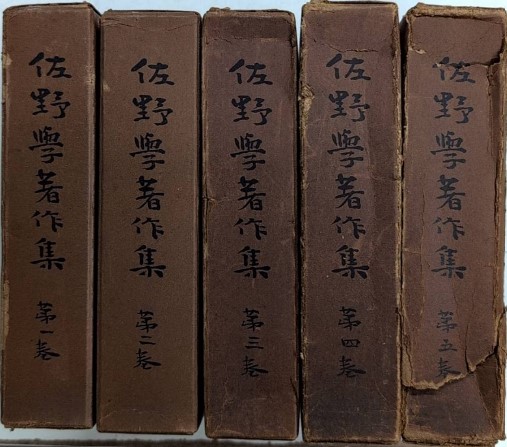 佐野學著作集 第一巻
佐野學著作集 第二巻
佐野學著作集 第三巻
佐野學著作集 第四巻
佐野學著作集 第五巻